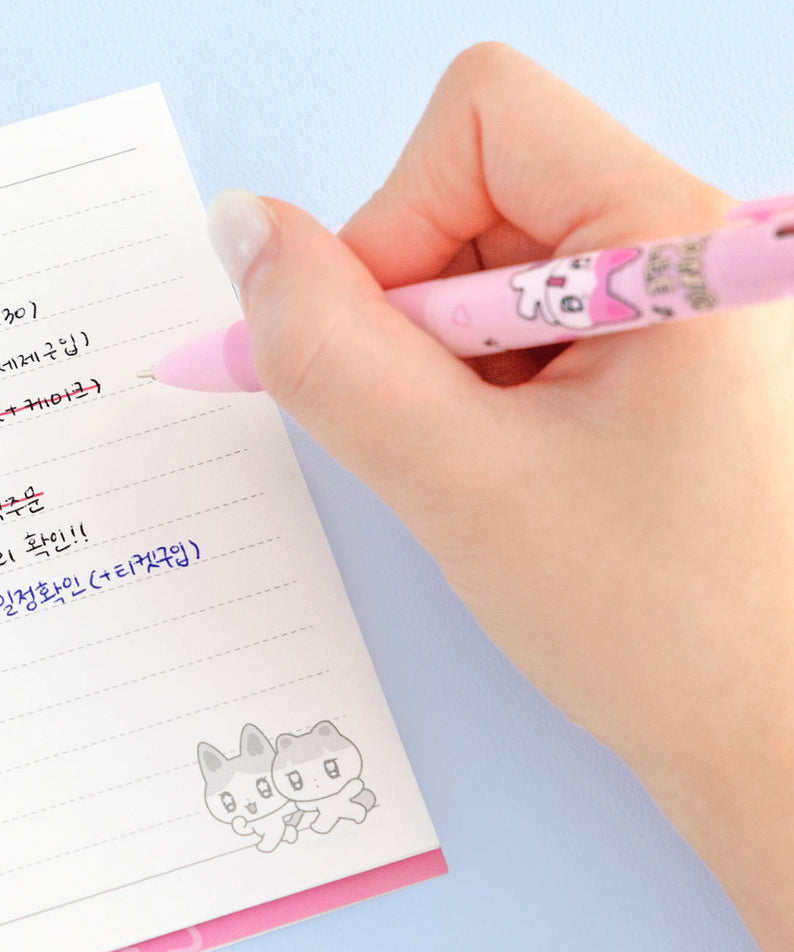 30)
세제구입)
+ 케이크)
주문
확인!!
일정확인 (+티켓구입)